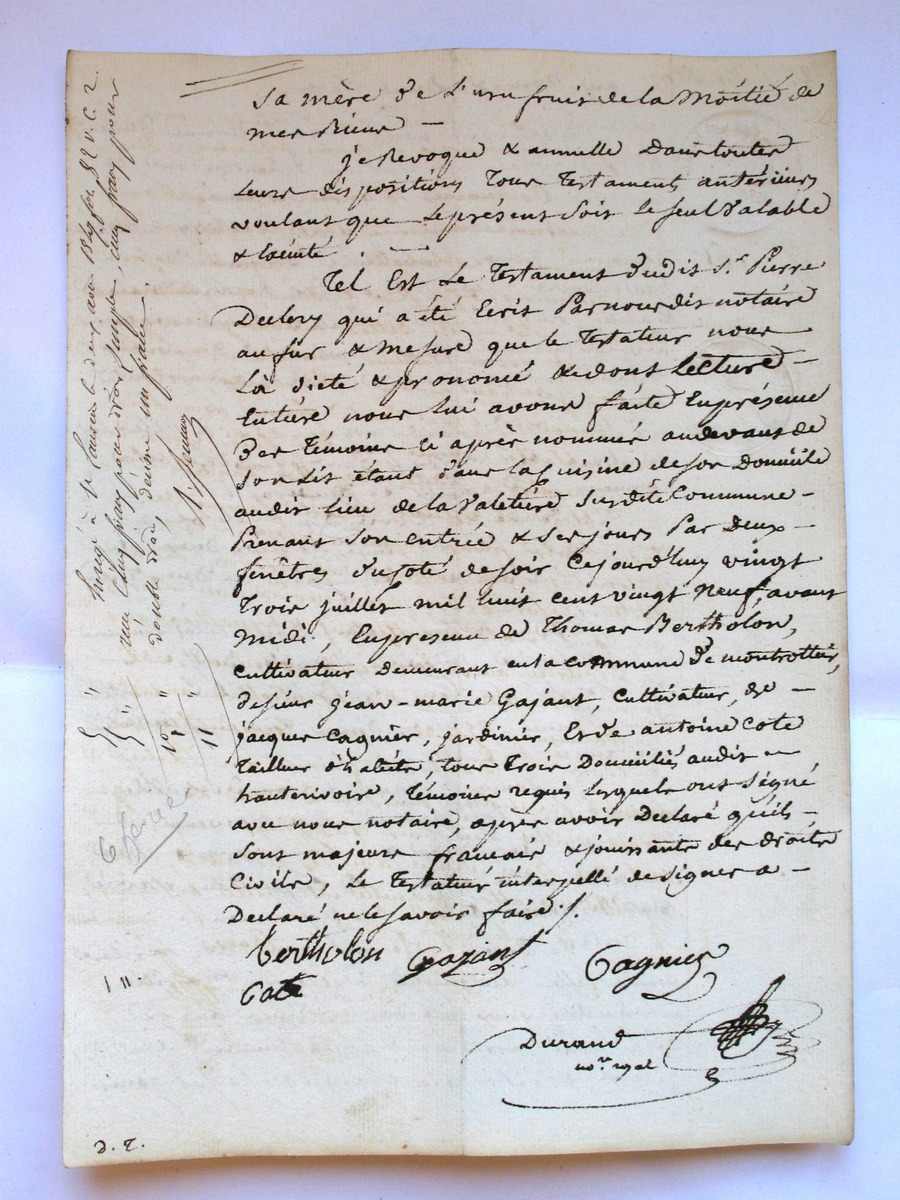 sa mère de l'usufruit de la moitié de
mes biens —
je Revoque & annulle Dans toutes
leurs dispositions Tous Testaments antérieurs
voulant que le présent soit le seul valable
& Exécuté . —
Tel Est Le Testament dudit S.r Pierre
qui a été Ecrit Par nous dit notaire
au fur & mesure que le Testateur nous
La dicté & prononcé & dont lecture —
Entière nous lui avons faite En présence
Des Témoins ci après nommés au devant de
Son Lit étant dans la Cuisine de son Domicile
audit lieu de la Valetière Susdite Commune —
Prenant Son entrée & Ses jours Par Deux —
fenêtres du coté de soir Cejourd'huy vingt
Trois juillet mil huit cent vingt neuf, avant
midi, En présence de Thomas Bertholon,
Cultivateur Demeurant en la commune de montrottier,
de sieur jean-marie Gajant, Cultivateur, de —
jacques Cagnier, jardinier, Et de antoine Cote
Tailleur d'habits, tous Trois Domiciliés audit —
hauterivoir, Témoins requis lesquels ont Signé
avec nous notaire, après avoir Déclaré qu'ils —
Sont majeurs francais & jouissants des droits
Civils, Le Testateur interpellé de signer a —
Declaré ne le savoir faire ./.
Bertholon Gazant Gagnier
Cote
Durand
no.re royal
cinq francs pour
double droit, décime un franc.
5 "
5 "
10 "
1 "
11
6
1 11.
D. T.